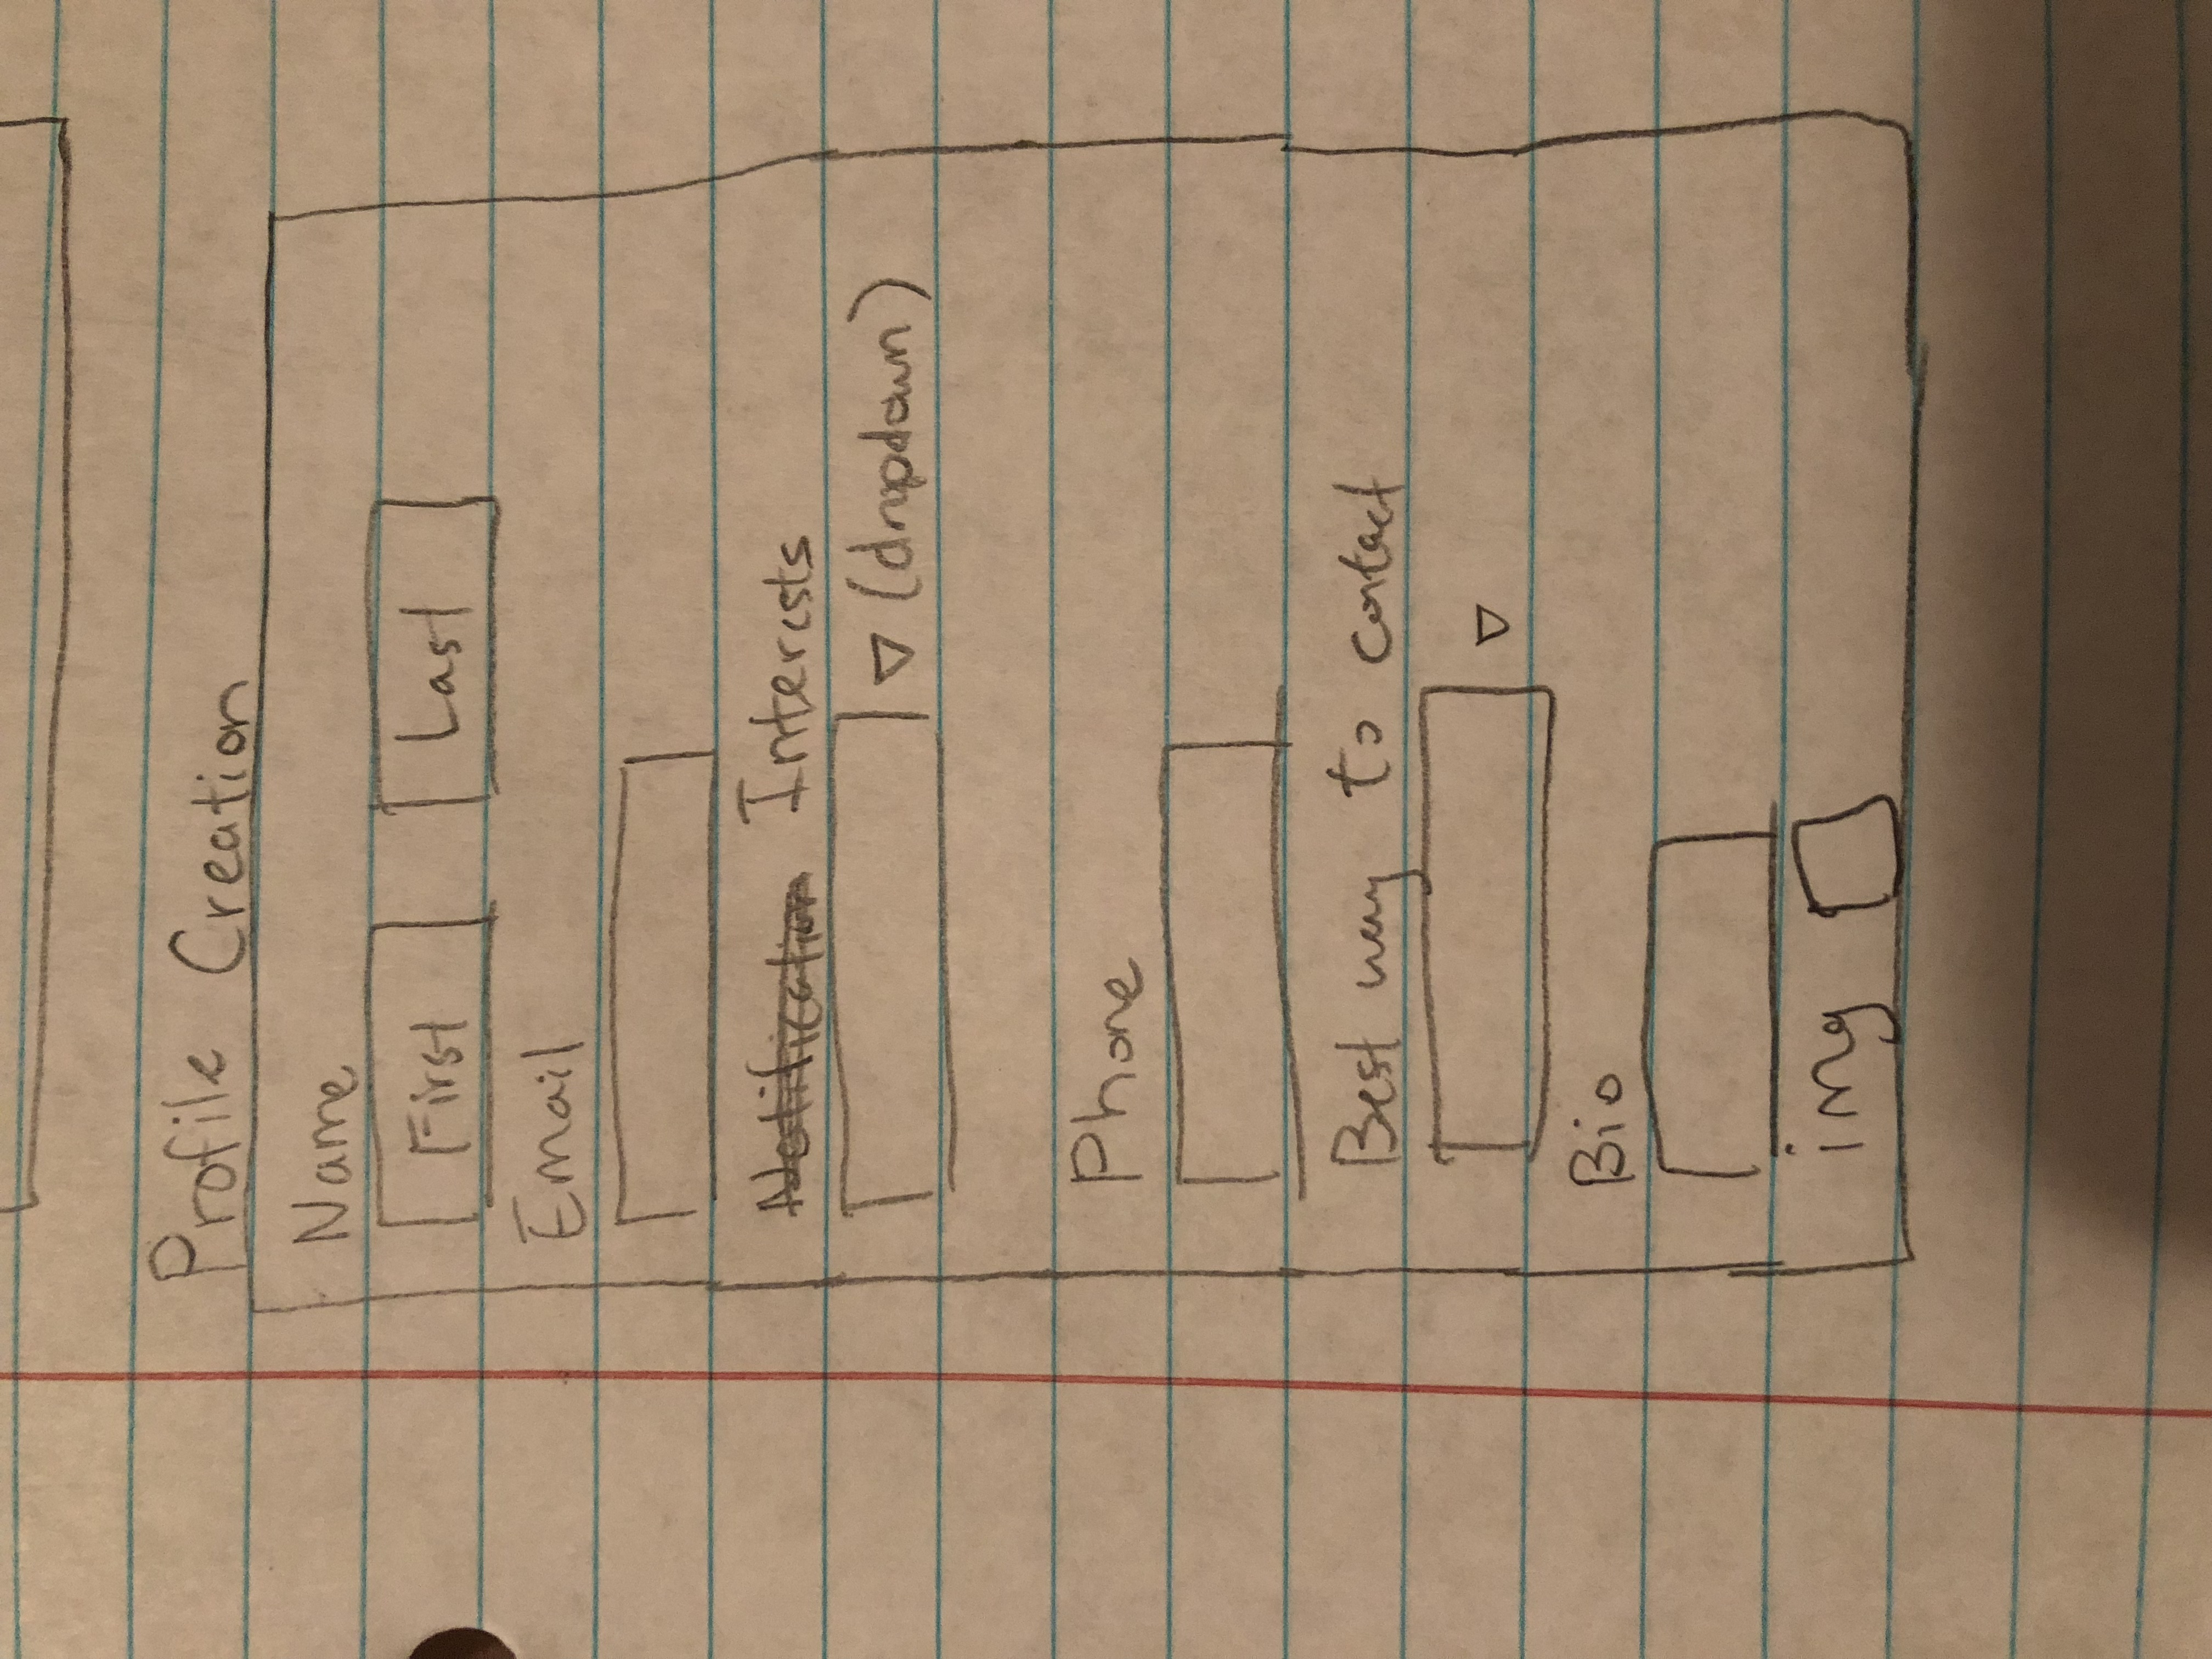 Profile Creation
Name
First Last
Email
Notification Interests
(dropdown)
Phone
Best way to contact
Bio
img